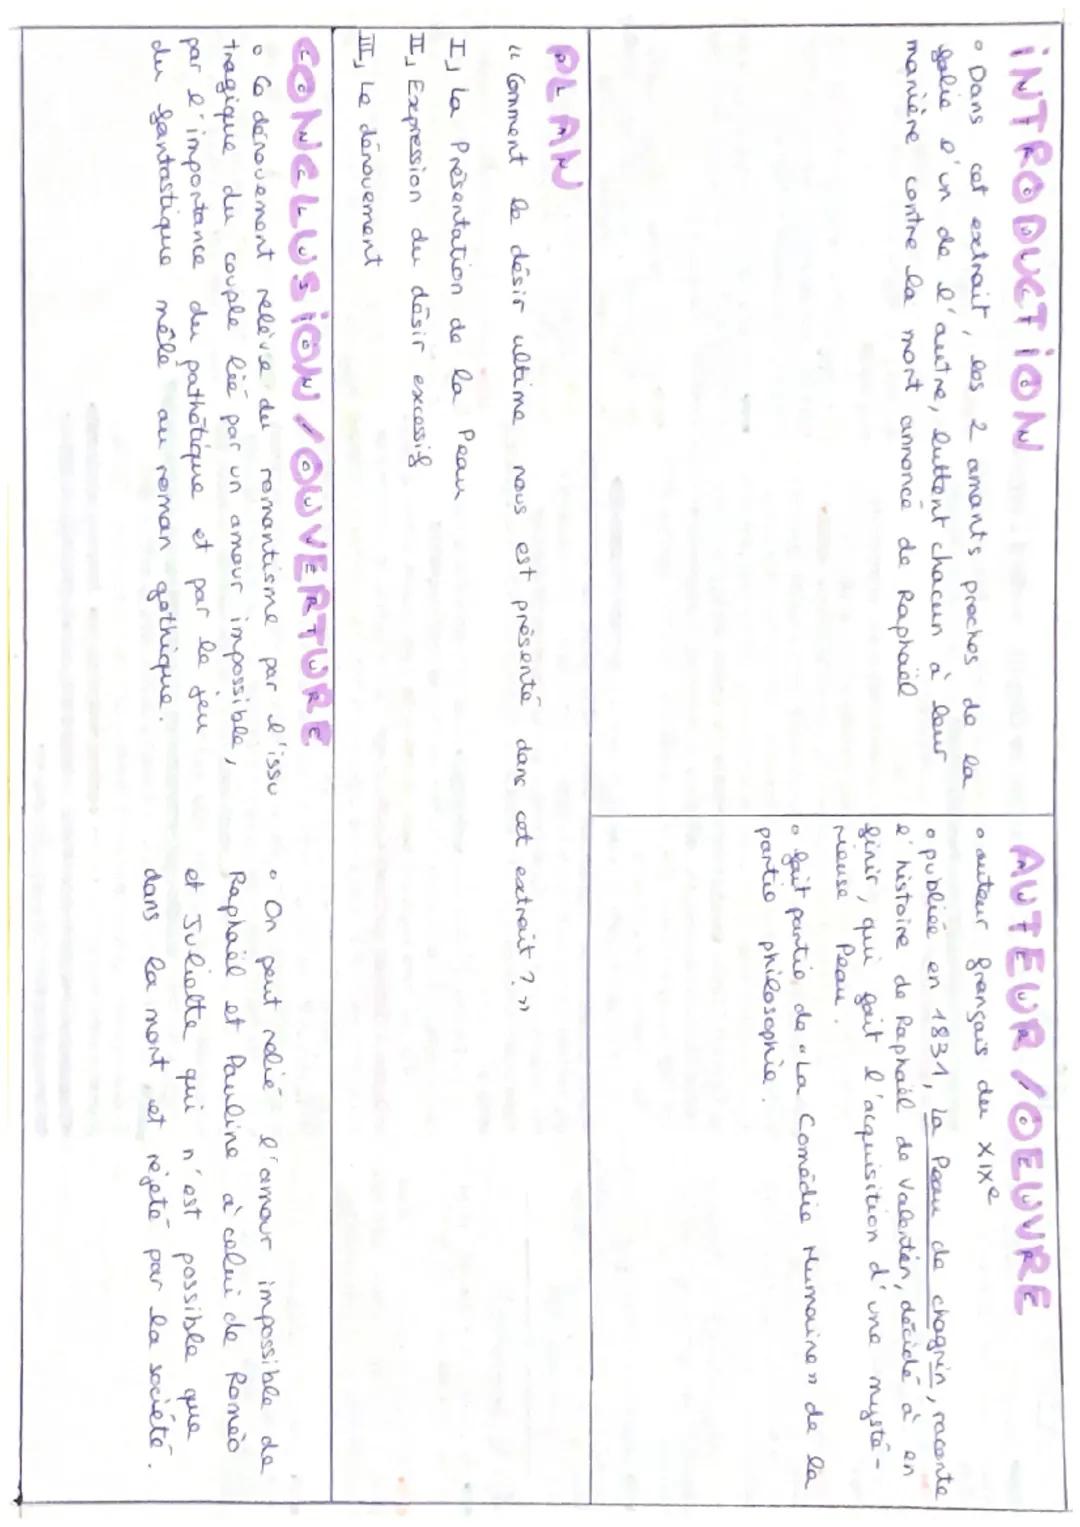 INTRODUCTION
° Dans cet extrait, les 2 amants proches de la
folie d'un de l'autre, luttent chacun à leur
manière contre la mort annoncé de Raphaël
AUTEUR / OEUVRE
° auteur français du XIXe
° publiée en 1831, La Peau de chagrin, raconte
l'histoire de Raphaël de Valentin, décidé à en
finir, qui fait l'acquisition d'une mysté-
rieuse Peau.
° fait partie de "La Comédie Humaine" de la
partie philosophie.
PLAN
"Comment le désir ultime nous est présenté dans cet extrait ?"
I, La Présentation de la Peau
II, Expression du désir excessif
III, Le dénouement
CONCLUSION / OUVERTURE
° Ce dénouement relève du romantisme par l'issu
tragique du couple lié par un amour impossible,
par l'importance du pathétique et par le jeu
du fantastique mêlé au roman gothique.
° On peut relié l'amour impossible de
Raphaël et Pauline à celui de Roméo
et Juliette qui n'est possible que
dans la mort et rejeté par la société.